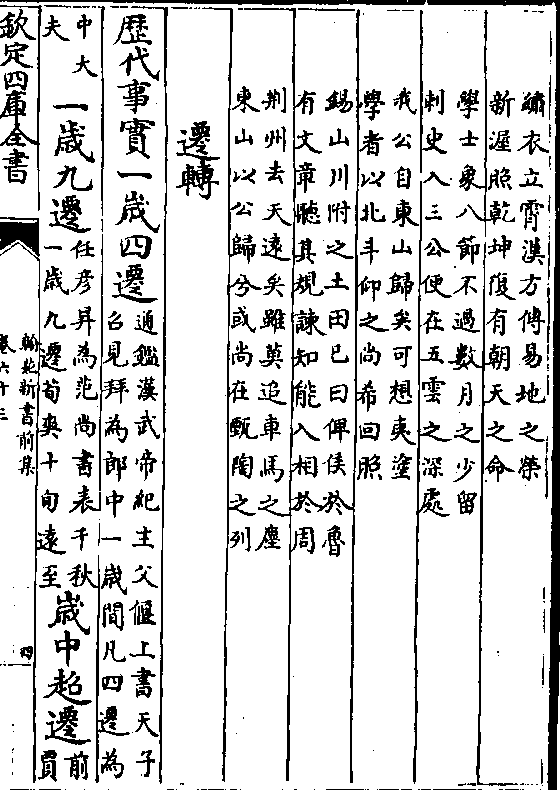 繡衣立霄漢方傅易地之榮
新渥照乾坤復有朝天之命
學士象八節不過數月之少留
刺史入三公便在五雲之深處
我公自東山歸矣可想夷塗
學者以北斗仰之尚希回照
錫山川附之土田已曰俾侯於魯
有文章聽其規諫知能入相於周
荆州去天遠矣雖莫追車馬之塵
東山以公歸兮或尚在甄陶之列
遷轉
歷代事實一歲四遷通鑑漢武帝紀主父偃上書天子
召見拜為郎中一歲間凡四遷為
中大
夫
一歲九遷任彦昇為范尚書表千秋
一歲九遷荀爽十旬遠至
歲中超遷前
賈
欽定四庫全書
翰苑新書前集
卷六十三
四